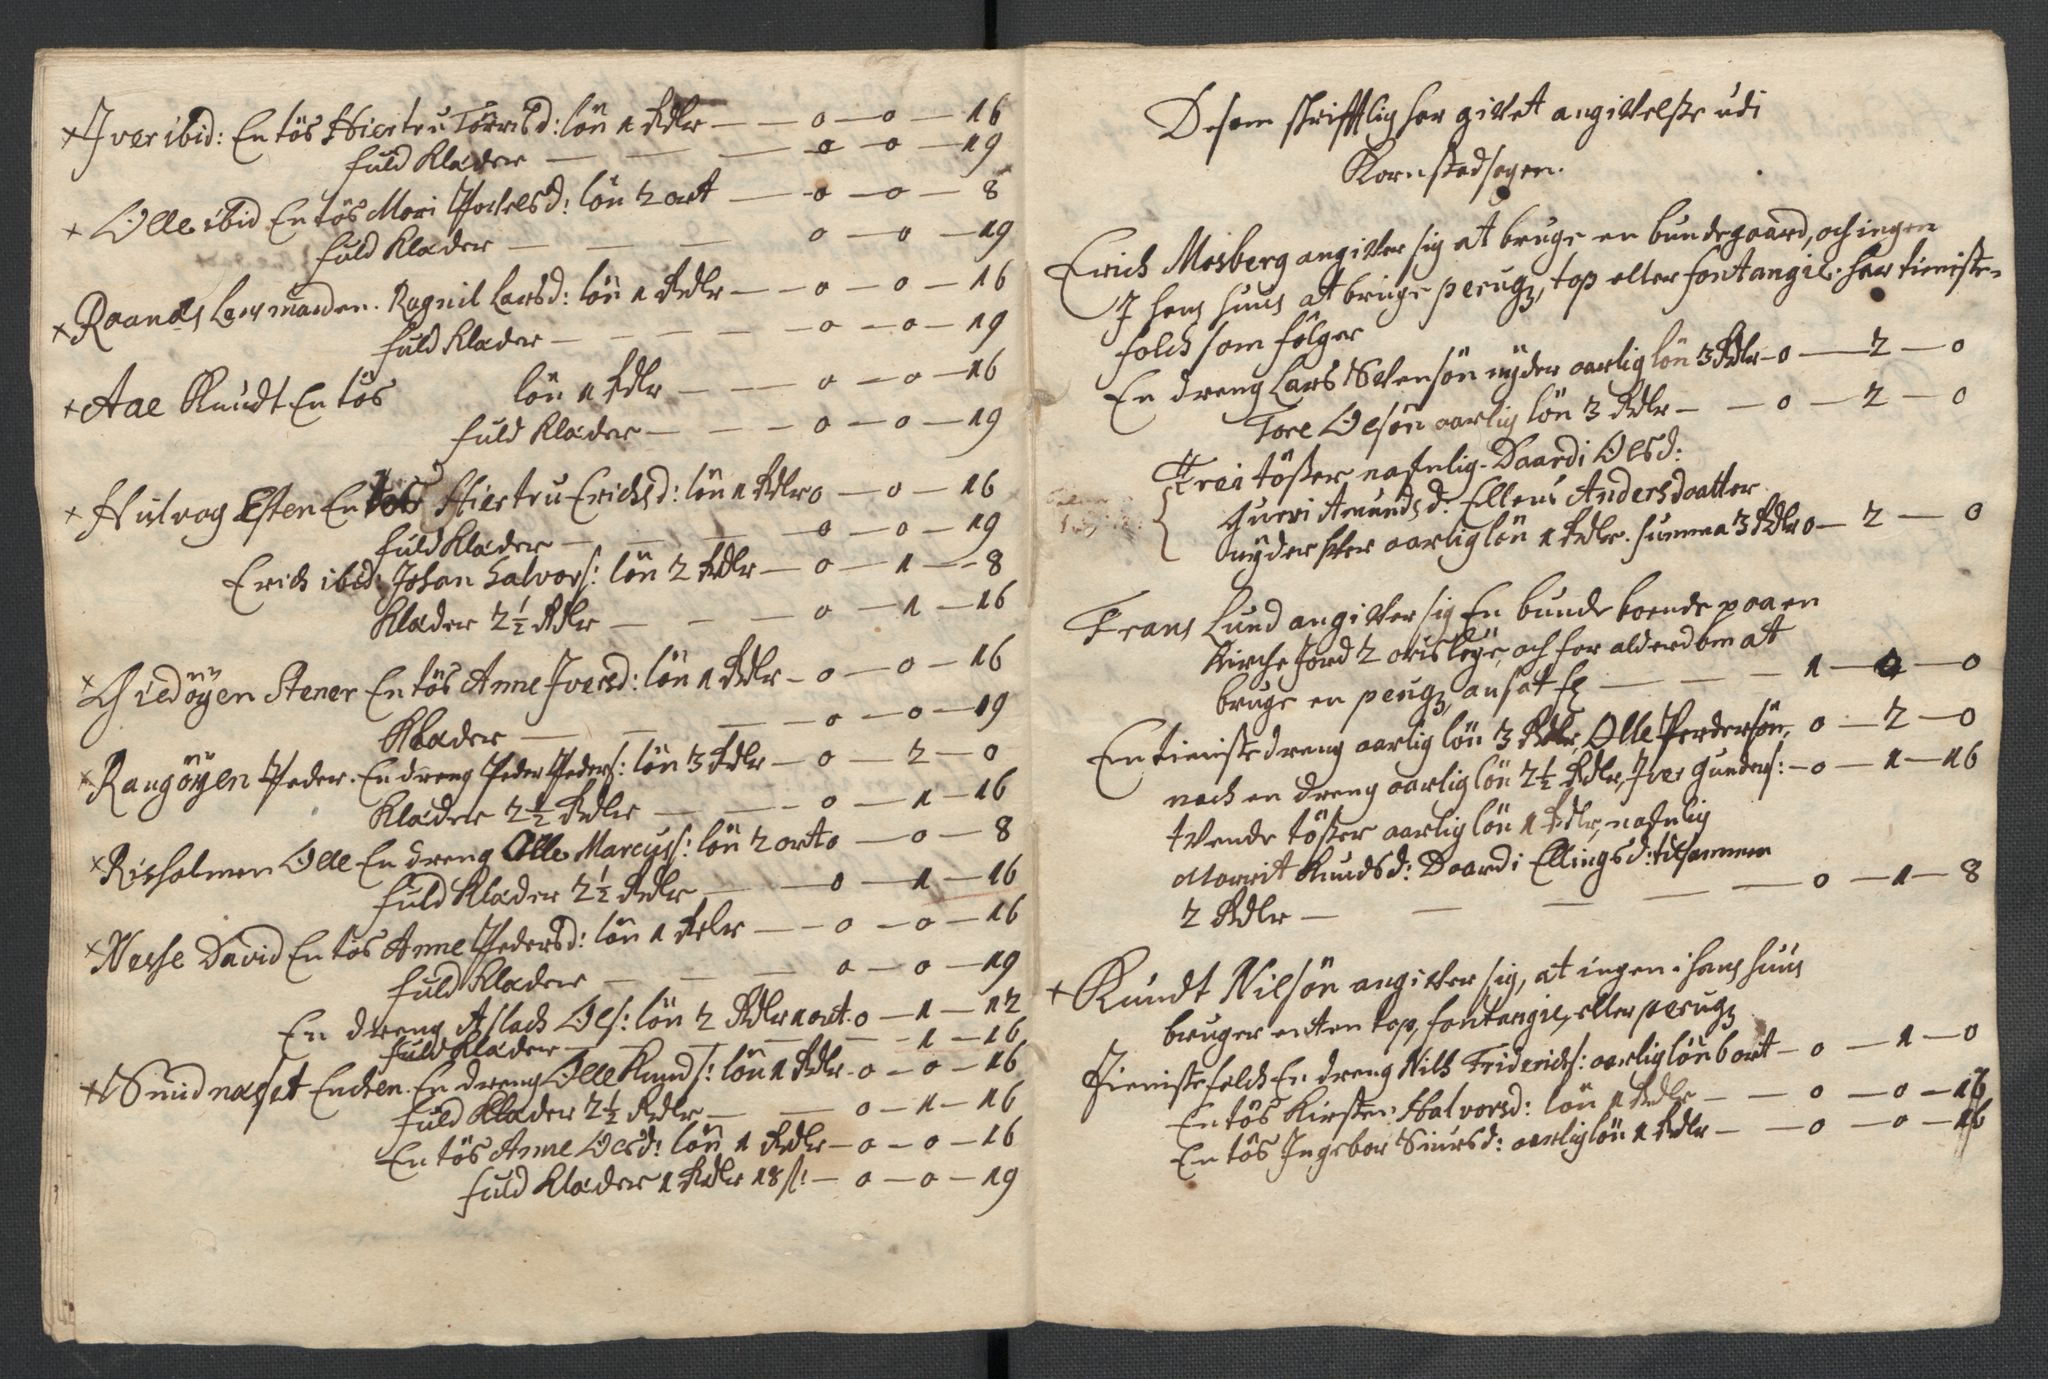 × Iver ibid: En tös Hiertru Torrisd: lön 1 Rdlr — — 0 — 0 — 16
fuld Klæder — — — 0 — 0 — 19
× Olle ibid En tös Mari Pochelsd: lön 2 ort — — 0 — 0 — 8
fuld Klæder — — — 0 — 0 — 19
× Raanes Lars manden. Ragnil Larsd: lön 1 Rdlr — — 0 — 0 — 16
fuld Klæder — — — 0 — 0 — 19
× Aae Knudt En tös lön 1 Rdlr — — 0 — 0 — 16
fuld Klæder — — — 0 — 0 — 19
× Husvog Esten En tös Hiertru Erichsd: lön 1 Rdlr 0 — 0 — 16
fuld Klæder — — — 0 — 0 — 19
Erich ibid: Johan Halvors: lön 2 Rdlr — 0 — 1 — 8
Klæder 2½ Rdlr — — — 0 — 1 — 16
× Giedöyen Stener En tös Anne Iversd: lön 1 Rdlr — 0 — 0 — 16
Klæder — — — 0 — 0 — 19
× Rangöyen Peder. En dreng Peder Peders: lön 3 Rdlr — 0 — 2 — 0
Klæder 2½ Rdlr — — — 0 — 1 — 16
× Risholmen Olle En dreng Olle Marcuss: lön 2 ort 0 — 0 — 8
fuld Klæder 2½ Rdlr — — 0 — 1 — 16
× Nesse David En tös Anne Pedersd: lön 1 Rdlr — — 0 — 0 — 16
fuld Klæder — — — 0 — 0 — 19
En dreng Aslach Ols: lön 2 Rdlr 1 ort. 0 — 1 — 12
fuld Klæder — — — — 1 — 16
× Smidnæset Enchen. En dreng Olle Knuds: lön 1 Rdlr. 0 — 0 — 16
fuld Klæder 2½ Rdlr — — 0 — 1 — 16
En tös Anne Olsd: lön 1 Rdlr — 0 — 0 — 16
fuld Klæder 1 Rdlr 18 s: — 0 — 0 — 19
De som skrifftlig har givet angivelse udi
Kornstadsogen.
Erich Mosberg angiver sig at bruge en bundegaard, och ingen
I hans huus at bruge perugz, top eller fontangie. har tieniste
folch som fölger
En dreng Lars Svensön nyder aarlig lön 3 Rdlr — 0 — 2 — 0
Tore Olsön aarlig lön 3 Rdlr — — 0 — 2 — 0
Trei tösser, nafnlig. Daardi Olsd:
Gueri Amundsd: Ellens Andersdaatter
nyder hver aarlig lön 1 Rdlr. summa 3 Rdlr 0 — 2 — 0
Frans Lund angiver sig En bunde boende paa en
Kirche Jord 2 öris leye, och for alderdom at
bruge en perugz, ansat f — — — 1 — 0 — 0
En tieniste dreng aarlig lön 3 Rdlr, Olle Pedersön. 0 — 2 — 0
noch en dreng aarlig lön 2½ Rdlr, Iver Gunders: — 0 — 1 — 16
tvende tösser aarlig lön 1 Rdlr, nafnlig
Marrit Knudsd: Daardi Ellingsd: tilsammen
2 Rdlr — — — — — 0 — 1 — 8
× Knudt Nilsön angiver sig, at ingen i hans huus
bruger enten top, fontangie, eller perugz
Tieniste folch En dreng Nils Friderichs: aarlig lön 6 ort — 0 — 1 — 0
En tös Kirsten Halvorsd: lön 1 Rdlr — — 0 — 0 — 16
En tös Ingebor Siursd: aarlig lön 1 Rdlr — — 0 — 0 — 16